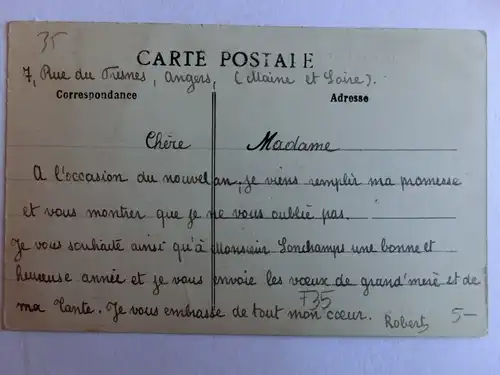 35
CARTE POSTALE
7, Rue du Fresnes, Angers, (Maine et Loire).
Correspondance Adresse
Chère Madame
A l'occasion du nouvel an, je viens remplir ma promesse
et vous montrer que je ne vous oublie pas.
Je vous souhaite ainsi qu'à Monsieur Lonchamps une bonne et
heureuse année et je vous envoie les vœux de grand'mère et de
ma tante. Je vous embrasse de tout mon cœur.
F35
Robert 5-